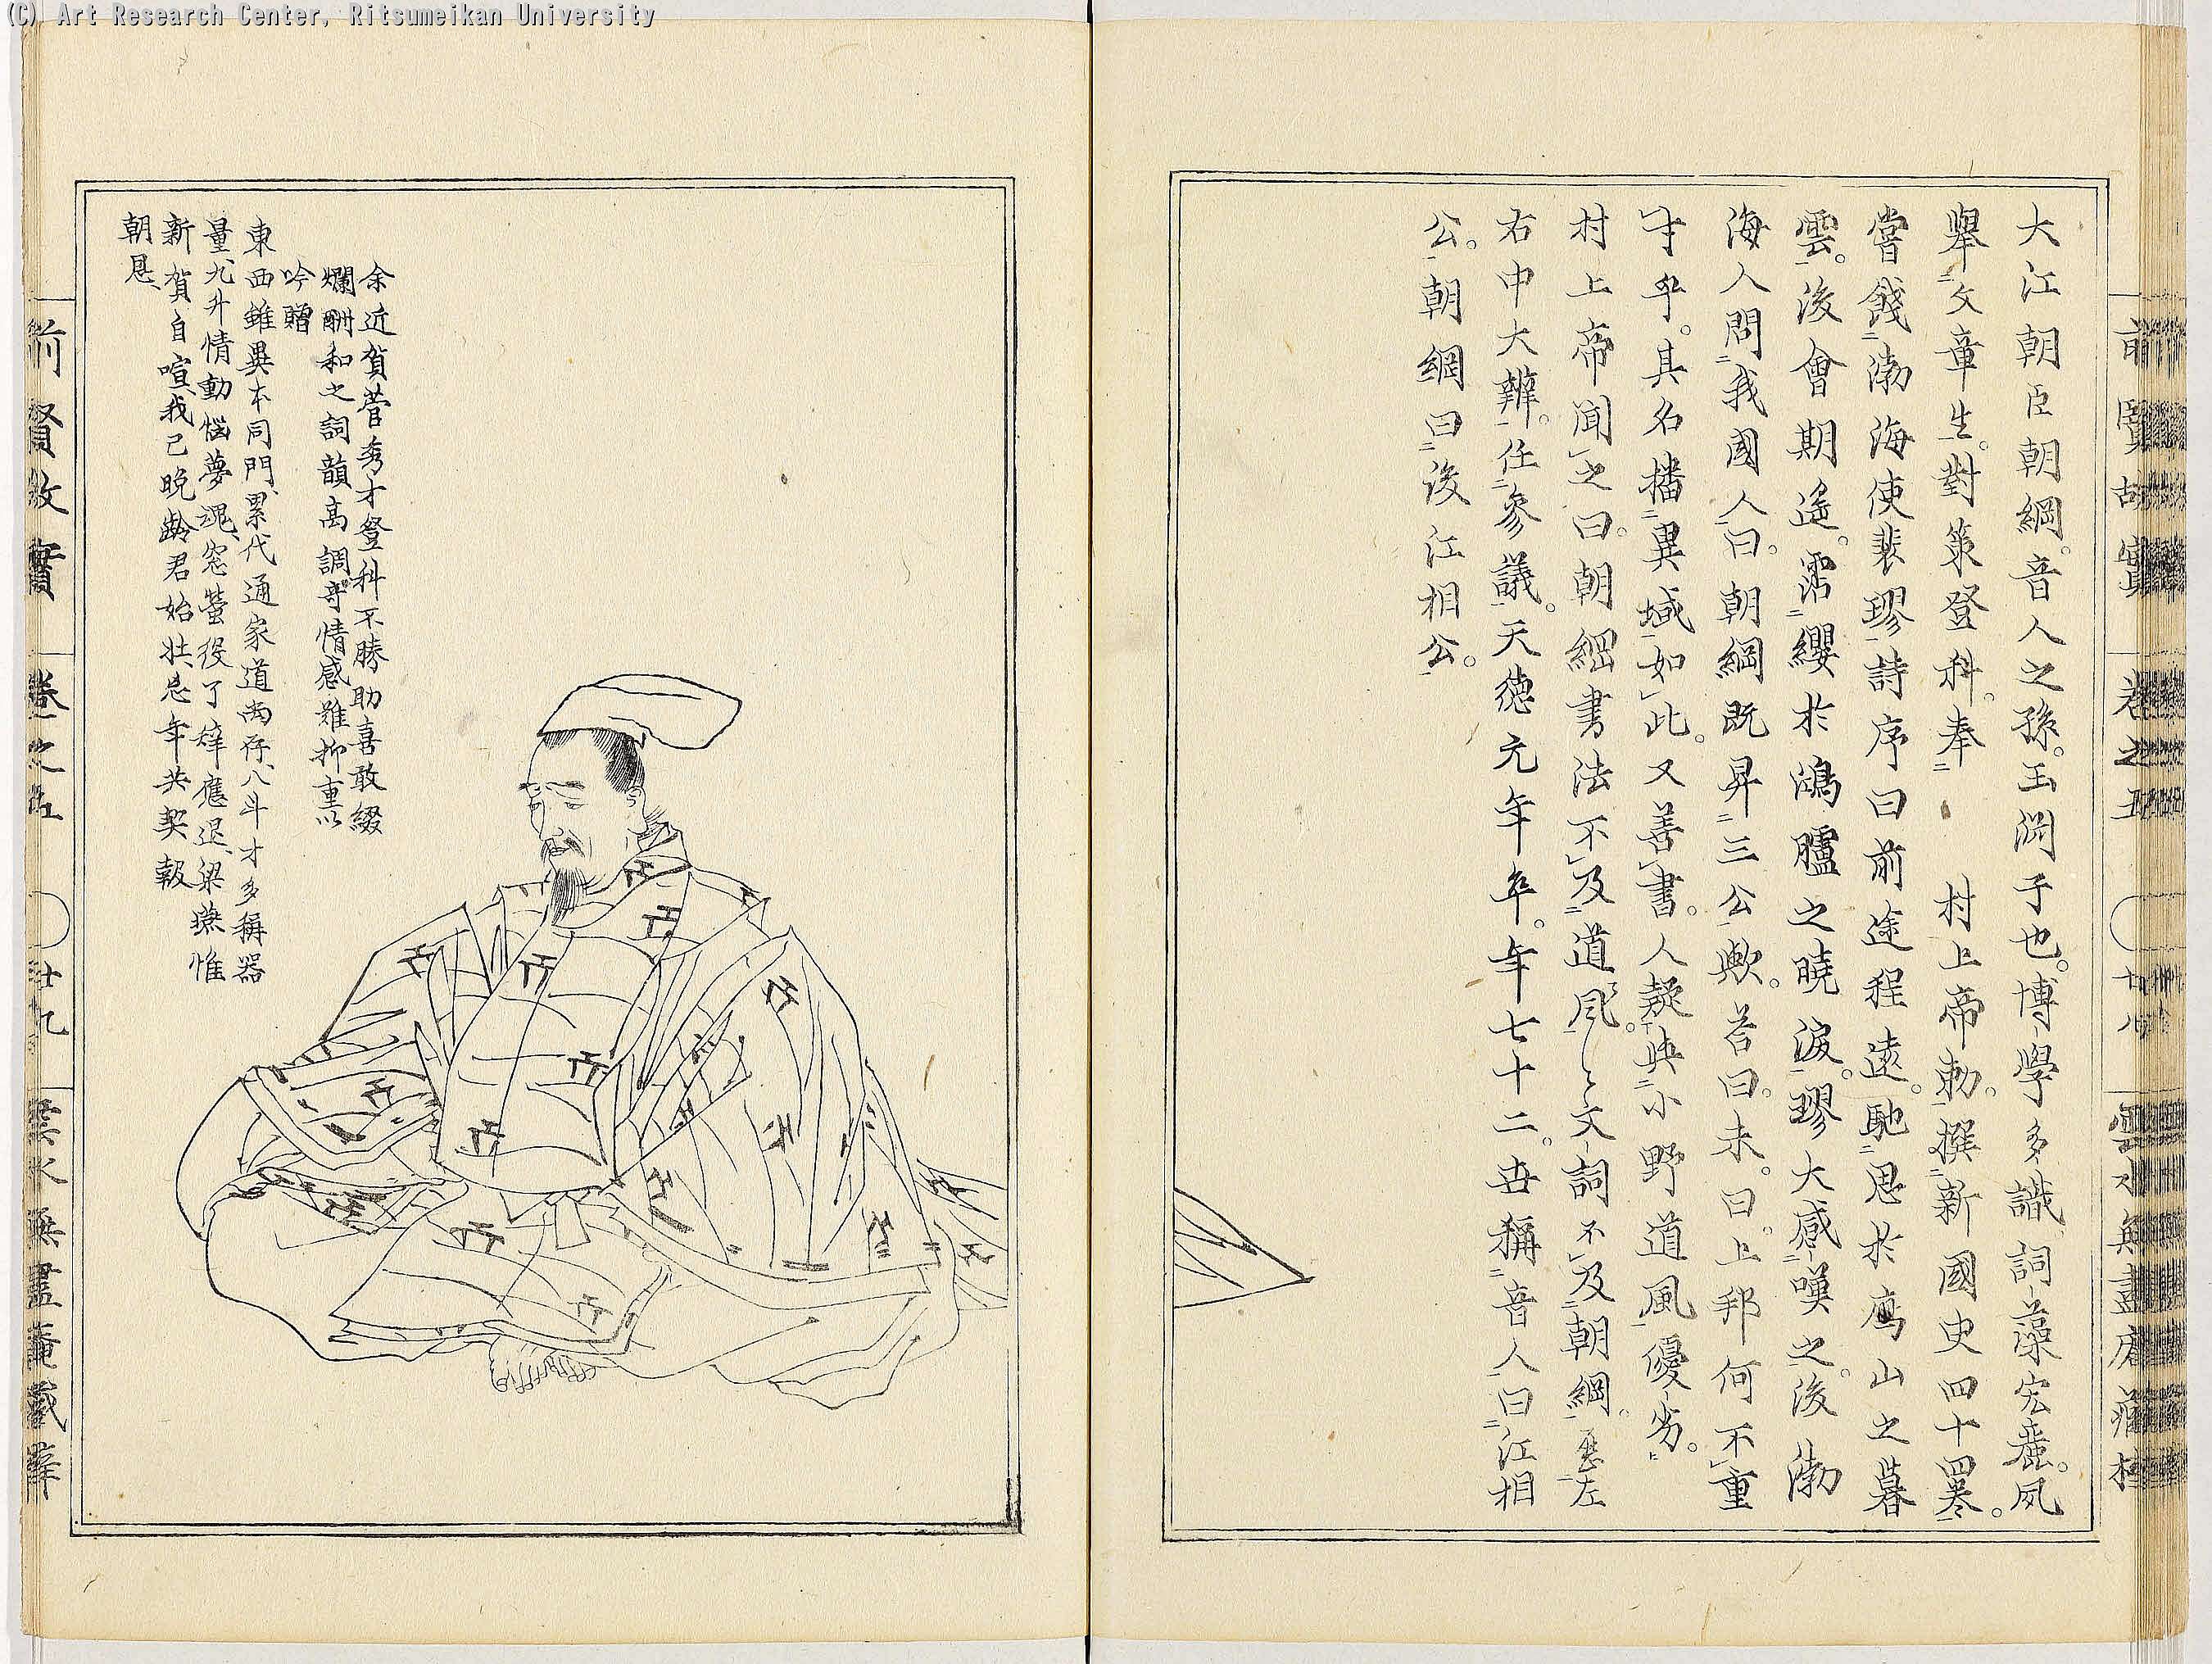 (C) Art Research Center, Ritsumeikan University
大江朝臣朝綱。音人之孫。玉渕子也。博學多識詞藻宏麗。夙
擧文章生。對策登科。奉
村上帝勅。撰新國史四十巻。
嘗餞渤海使裴璆詩序曰前途程遠。馳思於鴈山之暮
雲。後會期遙。霑纓於鴻臚之曉淚。璆大感嘆之。後渤
海人問我國人曰。朝綱既昇三公歟。答曰。未。曰。上邦何不重
才乎。其名播異域如此。又善書。人疑與小野道風優劣。
村上帝聞之曰。朝綱書法不及道風。々々文詞不及朝綱。歴左
右中大辨。任參議。天德元年卒。年七十二。世稱音人曰江相
公。朝綱曰後江相公。
余近賀菅秀才登科不勝助喜敢綴
爛酬和之詞韻高調奇情感難抑重以
吟贈
東西雖異本同門、累代通家道尚存、八斗才多稱器
量、九升情動惱夢魂、窓螢役了辞應退、梁燕惟
新賀自喧、我已晩齡君始壮、忘年共契報
朝恩、
前賢故實 卷之五 廿八
前賢故實 卷之五 廿九 雲水無盡庵藏梓